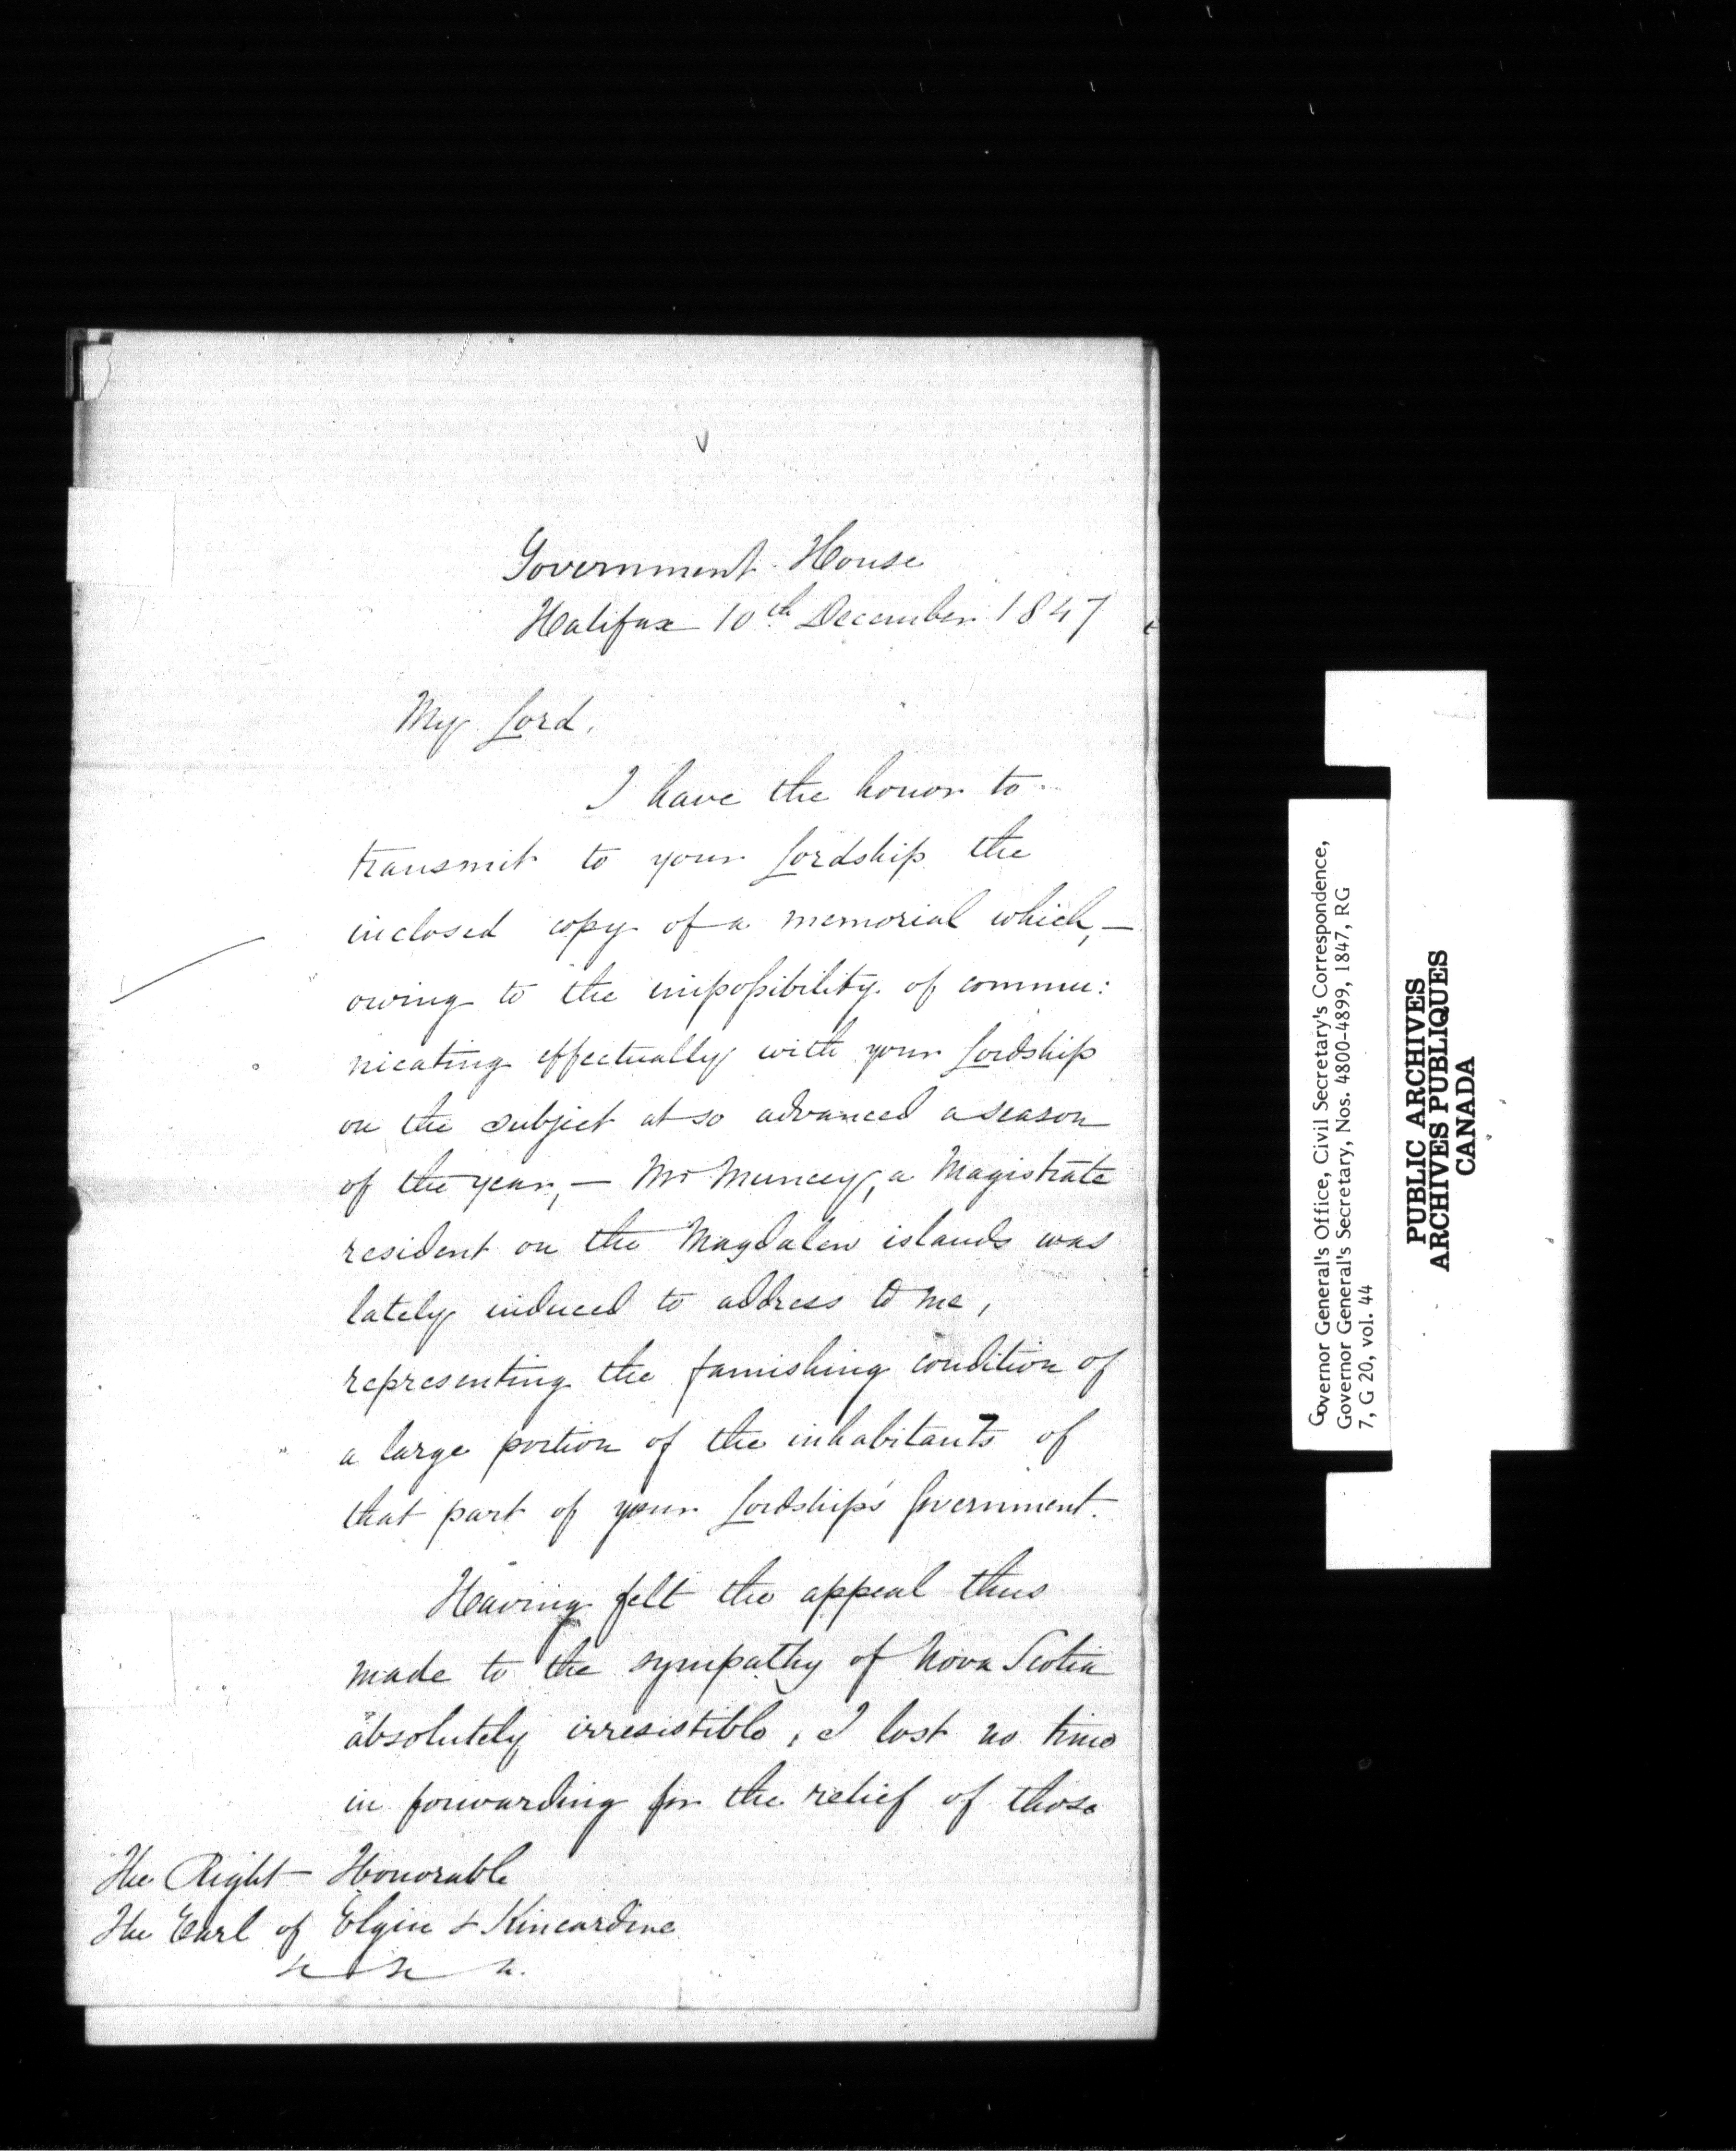 Government House
Halifax 10th December 1847
My Lord,
I have the honor to
transmit to your Lordship the
inclosed copy of a memorial which, —
owing to the impossibility of commu:
nicating effectually with your Lordship
on the subject at so advanced a season
of the year, — Mr Muncey, a Magistrate
resident on the Magdalen islands was
lately induced to address to me,
representing the famishing condition of
a large portion of the inhabitants of
that part of your Lordship's Government.
Having felt the appeal thus
made to the sympathy of Nova Scotia
absolutely irresistible, I lost no time
in forwarding for the relief of those
The Right Honorable
The Earl of Elgin & Kincardine
&c &c &c.
Governor General's Office, Civil Secretary's Correspondence,
Governor General's Secretary, Nos. 4800-4899, 1847, RG
7, G 20, vol. 44
PUBLIC ARCHIVES
ARCHIVES PUBLIQUES
CANADA